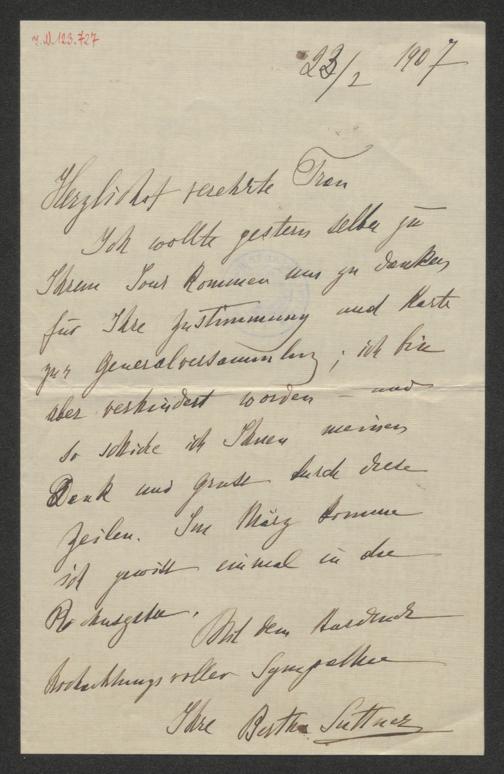 I.N. 123.727
23/2 1907
Herzlichst verehrte Frau
Ich wollte gestern selber zu
Ihrem Jour kommen um zu danken
für Ihre Zustimmung und Karte
zur Generalversammlung; ich bin
aber verhindert worden – und
so schicke ich Ihnen meinen
Dank und Gruß durch diese
Zeilen. Im März komme
ich gewiß einmal in die
Mit dem Ausdruck
hochachtungsvoller Sympathie
Ihre Bertha Suttner